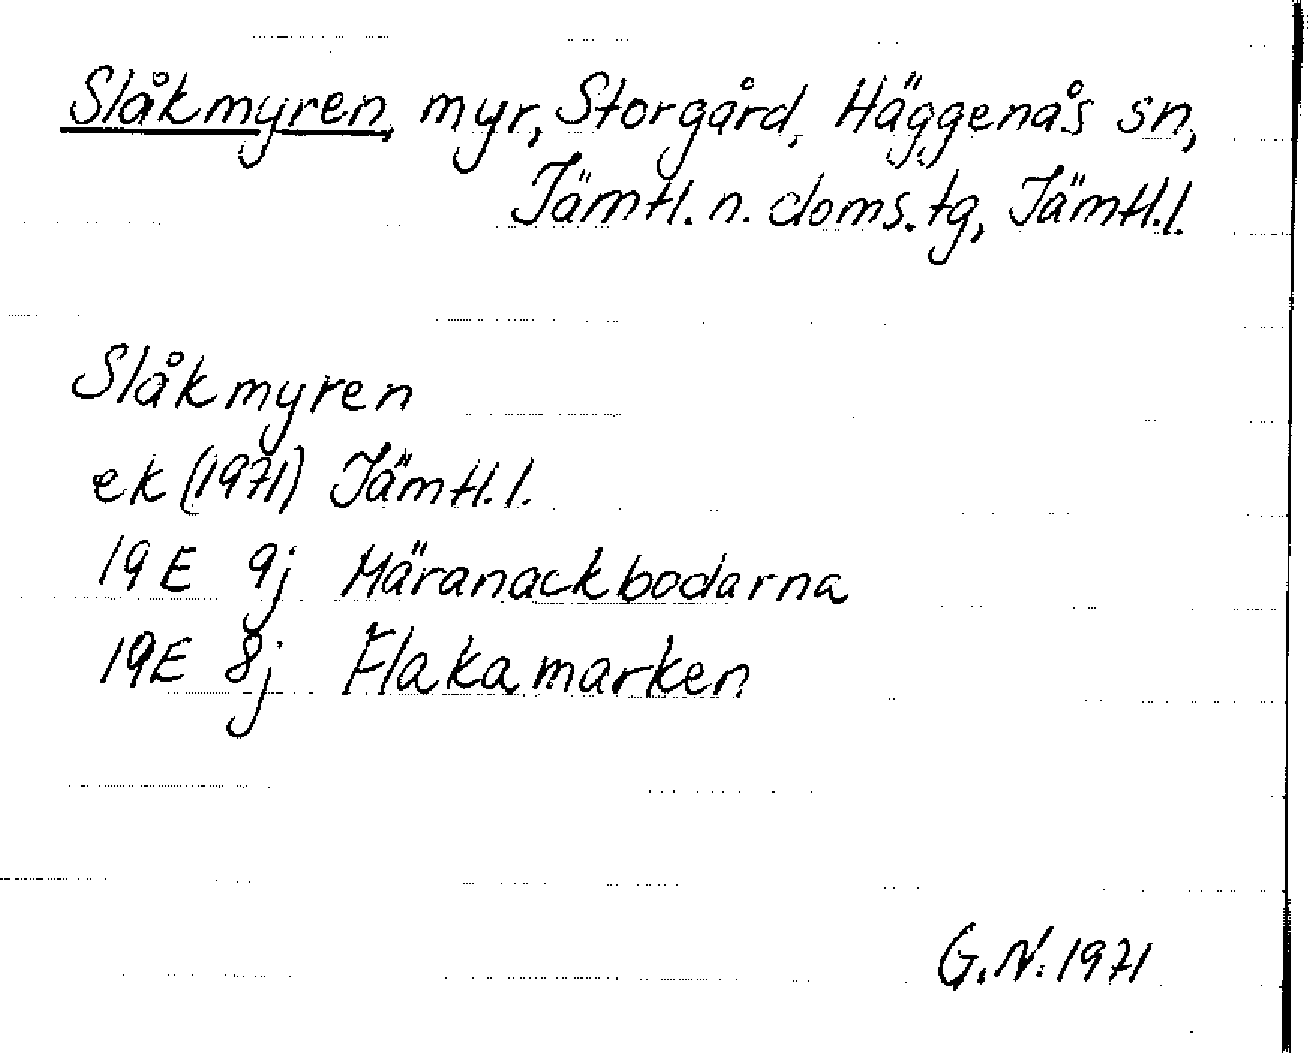 Slåkmyren, myr, Storgård, Häggenås sn,
Jämtl. n. doms. tg, Jämtl. l.
Slåkmyren
ek (1971) Jämtl. l.
19E 9j Märanackbodarna
19E 8j Flakamarken
G. N. 1971